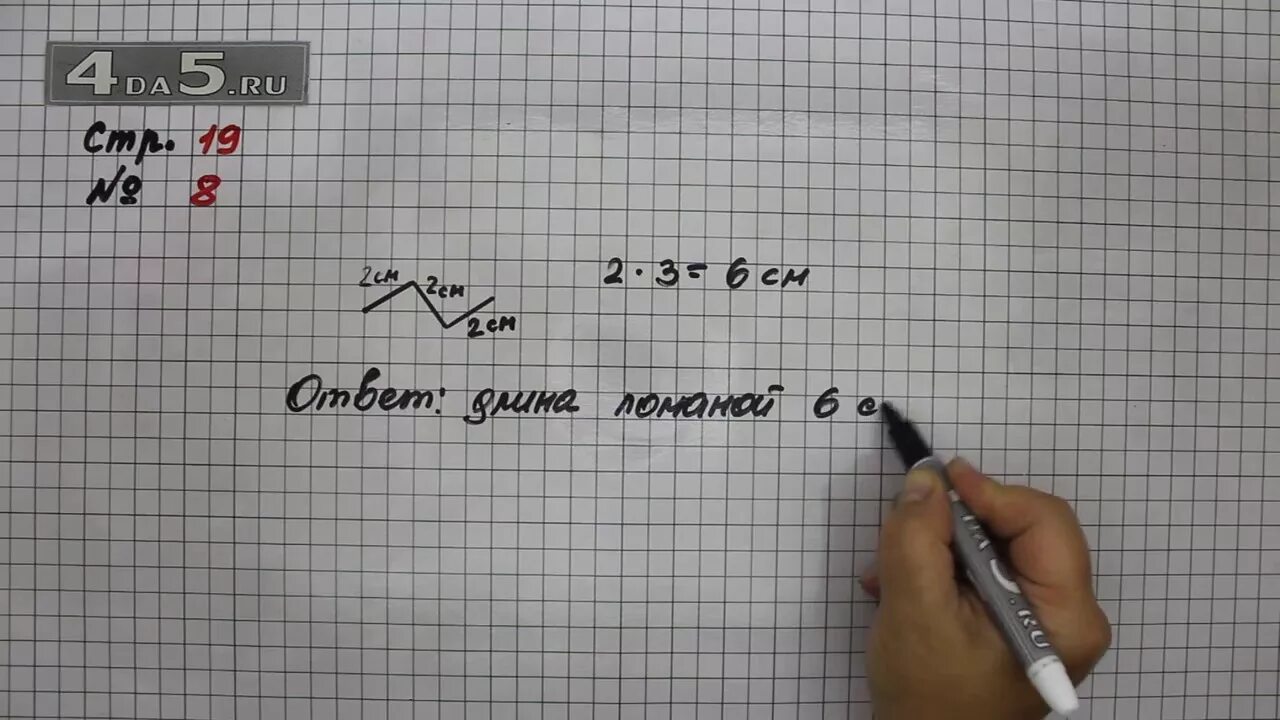 4DA5.RU
Стр. 19
№ 8
2см
2см
2см
2 · 3 = 6 см
Ответ: длина ломаной 6 с
DA 5.RU